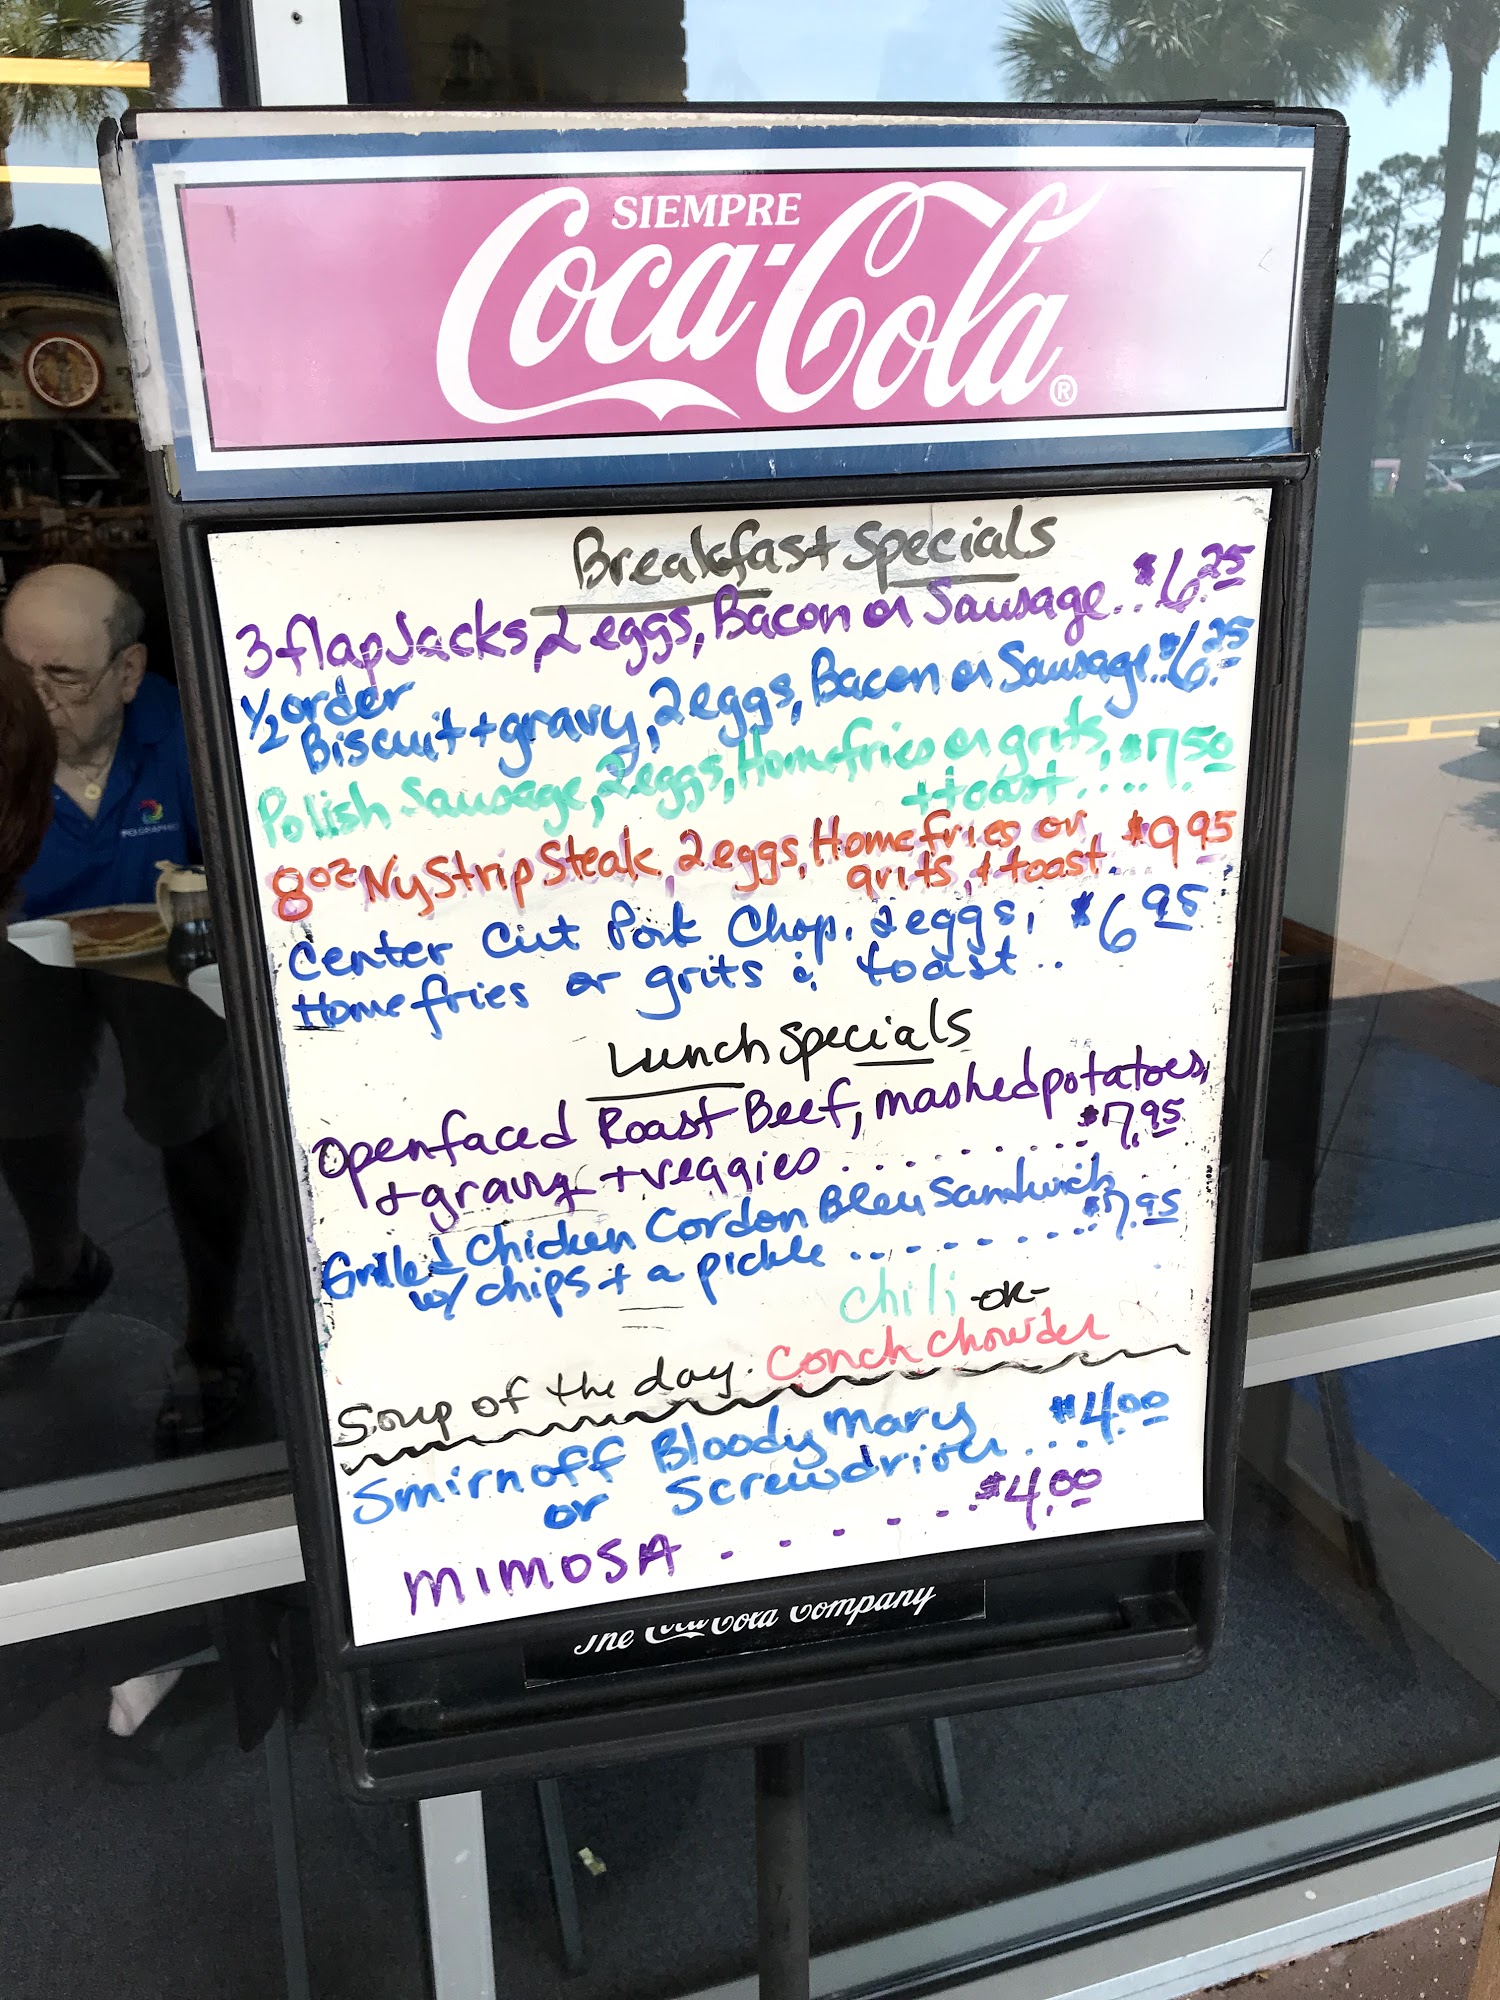 SIEMPRE
Coca-Cola®
Breakfast Specials
3 flapJacks, 2 eggs, Bacon or Sausage.. $6.25
1/2 order
Biscuit + gravy, 2 eggs, Bacon or Sausage.. $6.25
Polish Sausage, 2 eggs, Homefries or grits, $7.50
+ toast ....
8oz Ny Strip Steak, 2 eggs, Homefries or $9.95
grits, & toast.
Center Cut Pork Chop, 2 eggs, $6.95
Homefries or grits & toast ..
Lunch Specials
Openfaced Roast Beef, mashed potatoes,
+ gravy + veggies ......... $7.95
Grilled Chicken Cordon Bleu Sandwich
w/ chips + a pickle ......... $7.95
Chili -OR-
Soup of the day. Conch Chowder
Smirnoff Bloody Mary $4.00
or Screwdriver ....
MIMOSA ...... $4.00
The Coca-Cola Company